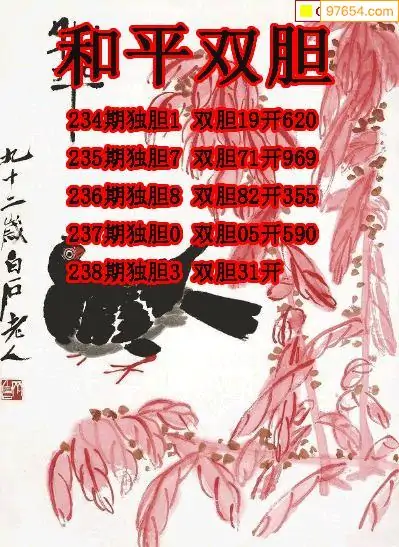 97654.com
和平双胆
234期独胆1 双胆19开620
235期独胆7 双胆71开969
236期独胆8 双胆82开355
237期独胆0 双胆05开590
238期独胆3 双胆31开
九十二岁白石老人